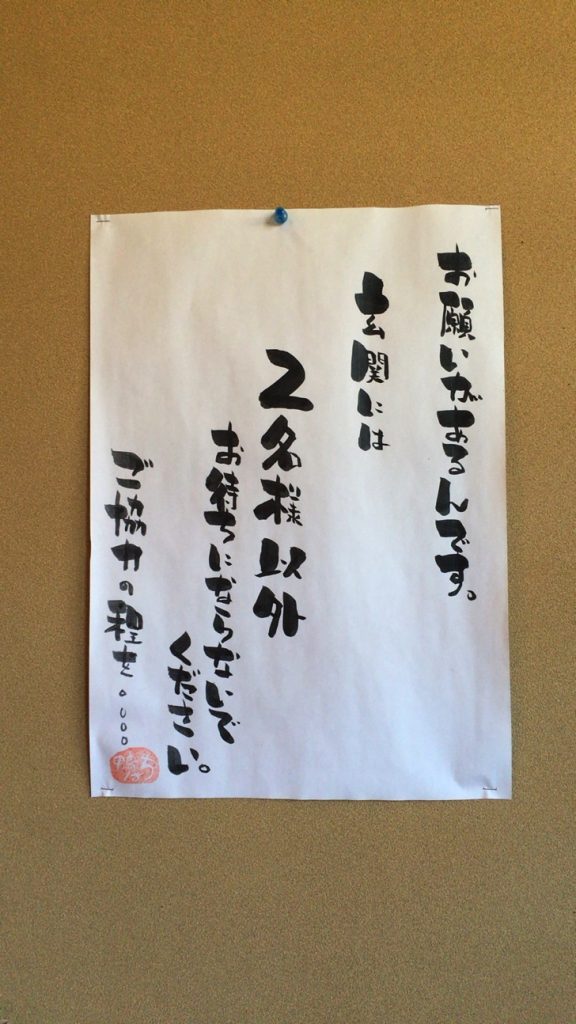 お願いがあるんです。
玄関には
2名様以外
お待ちにならないで
ください。
ご協力の程を。。。。